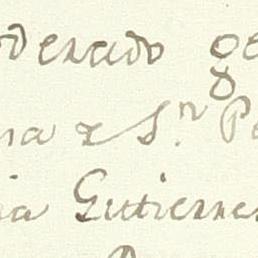 oderado ge
na & S.r Pe
ia Gutierres